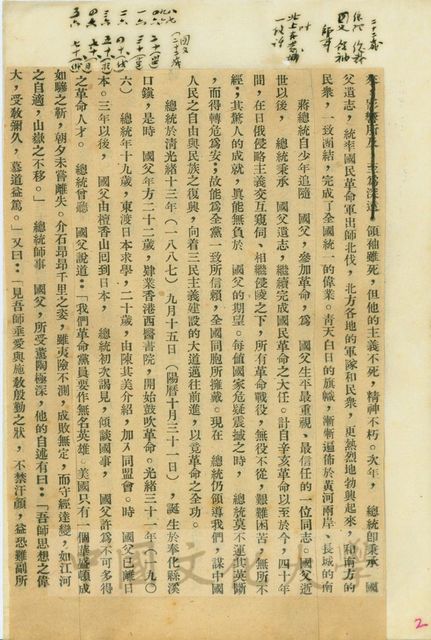 領袖雖死，但他的主義不死，精神不朽。次年，　總統即秉承　國
父遺志，統率國民革命軍出師北伐，北方各地的軍隊和民衆，更熱烈地勃興起來，和南方的
民衆，一致團結，完成了全國統一的偉業。靑天白日的旗幟，漸漸遍佈於黃河兩岸、長城的南
蔣總統自少年追隨　國父，參加革命，爲　國父生平最重視、最信任的一位同志　國父逝
世以後，　總統秉承　國父遺志，繼續完成國民革命之大任。計自辛亥革命以至於今，四十年
間，在日俄侵略主義交互窺伺、相繼侵陵之下，所有革命戰役，無役不從，艱難困苦，無所不
經；其驚人的成就，眞能無負於　國父的期望。每値國家危疑震撼之時，　總統莫不運其英斷
，而得轉危爲安；故能爲全黨一致所信賴，全國同胞所擁戴。現在　總統仍領導我們，謀中國
人民之自由與民族之復興，向着三民主義建設的大道邁往前進，以竟革命之全功。
總統於淸光緖十三年（一八八七）九月十五日（陽曆十月三十一日），誕生於奉化縣溪
口鎭，是時　國父年方二十二歲，肄業香港西醫書院，開始鼓吹革命。光緖三十一年（一九〇
六）　總統年十九歲，東渡日本求學，二十歲，由陳其美介紹，加入同盟會。時　國父已離日
本。三年以後，　國父由檀香山回到日本，　總統初次謁見，傾談國事，　國父許爲不可多得
之革命人才。　總統曾聽　國父說道：「我們革命黨員要作無名英雄，美國只有一個華盛頓成
如驂之靳，朝夕未嘗離失。介石昂昂千里之姿，雖夷險不測，成敗無定，而守經達變，如江河
之自適，山嶽之不移。」　總統師事　國父，所受薰陶極深，他的自述有曰：「吾師思想之偉
大，受敎彌久，慕道益篤。」又曰：「見吾師垂愛與施敎殷勤之狀，不禁汗顏，益恐難副所
中國文化大學
2